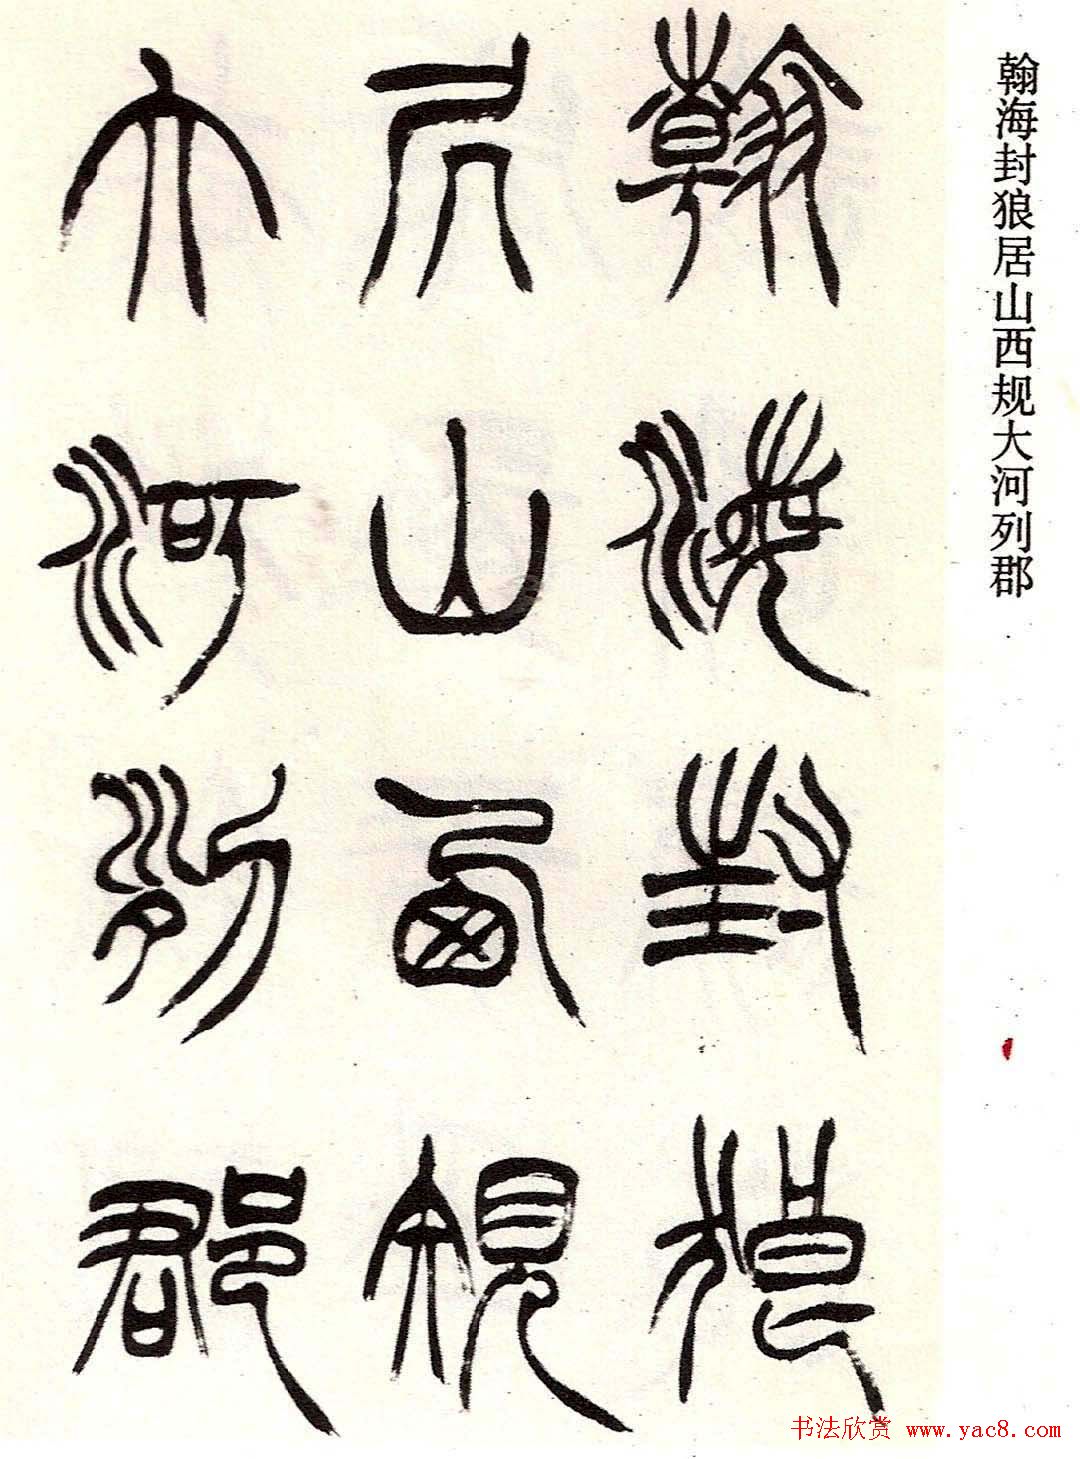 翰海封狼
居山西规
大河列郡
翰海封狼居山西规大河列郡
书法欣赏 www.yac8.com